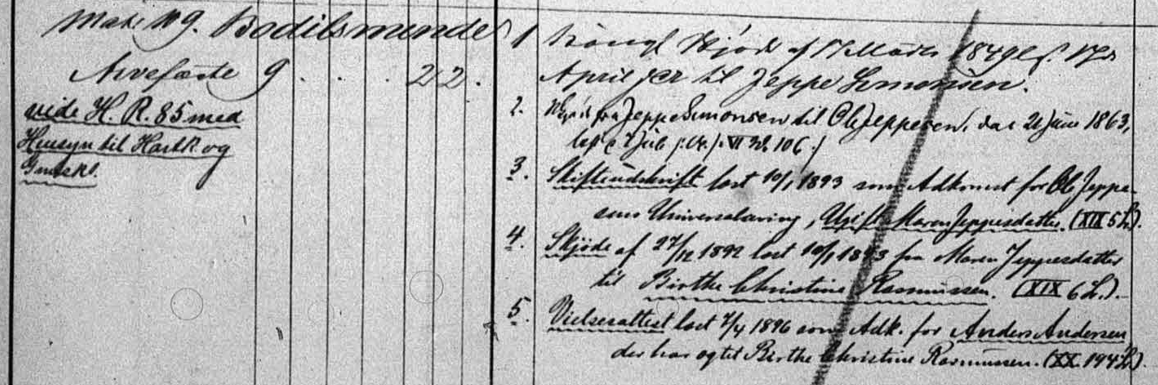 Matr No 9. Bodilsmunde
Arvefæste 9 . . . . 2 1 2 .
vide H. R. 85 med
Hensyn til Hartk. og
Gmskt.
1 Kongl Skjøde af 17 Marts 1849 lf. 17de
April for til Jeppe Simonsen.
2. Skjøde fra Jeppe Simonsen til Ole Jeppesen, dat 21 Juni 1863,
læst 7 Juli VI 106
3. Skifteudskrift læst 10/1 1893 som Adkomst for Ole Jeppe-
sens Universalarving, Ugift Maren Jeppesdatter. (XIX 5 L).
4. Skjøde af 27/12 1892 læst 10/1 1893 fra Maren Jeppesdatter
til Birthe Christine Rasmussen. (XIX 6 L.).
5. Vielsesattest læst 7/4 1896 som Adk. for Anders Andersen
der har ægtet Birthe Christine Rasmussen. (XX. 194 L).